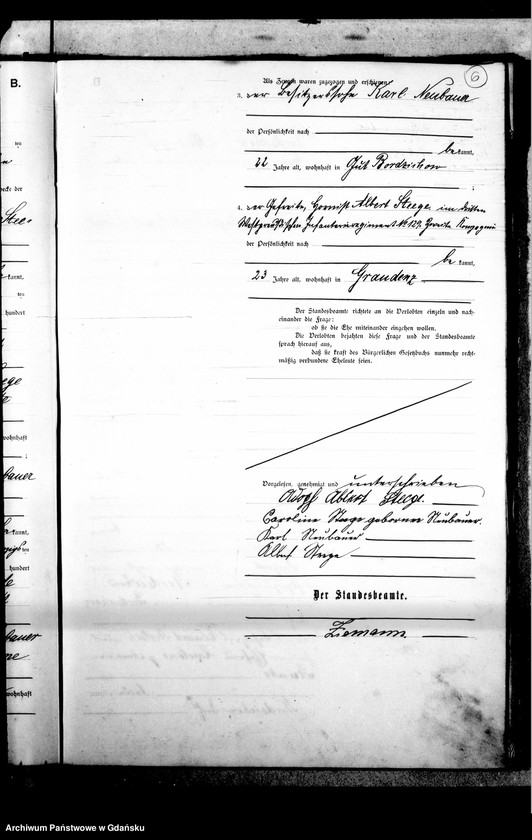 B.
6
Als Zeugen waren zugezogen und erschienen:
3. der Besitzerssohn Karl Neubauer
der Persönlichkeit nach
be kannt,
22 Jahre alt, wohnhaft in Gut Bordzichow
;
4. der Gefreite, Hornist Albert Steege im dritten
Westpreußischen Infanterieregiment No 129, zweite Kompagnie
der Persönlichkeit nach
be kannt,
23 Jahre alt, wohnhaft in Graudenz
Der Standesbeamte richtete an die Verlobten einzeln und nach-
einander die Frage:
ob sie die Ehe miteinander eingehen wollen.
Die Verlobten bejahten diese Frage und der Standesbeamte
sprach hierauf aus,
daß sie kraft des Bürgerlichen Gesetzbuchs nunmehr recht-
mäßig verbundene Eheleute seien.
Vorgelesen, genehmigt und unterschrieben
Adolf Albert Steege.
Caroline Steege geborene Neubauer.
Karl Neubauer
Albert Steege
Der Standesbeamte.
Ziemann
Archiwum Państwowe w Gdańsku